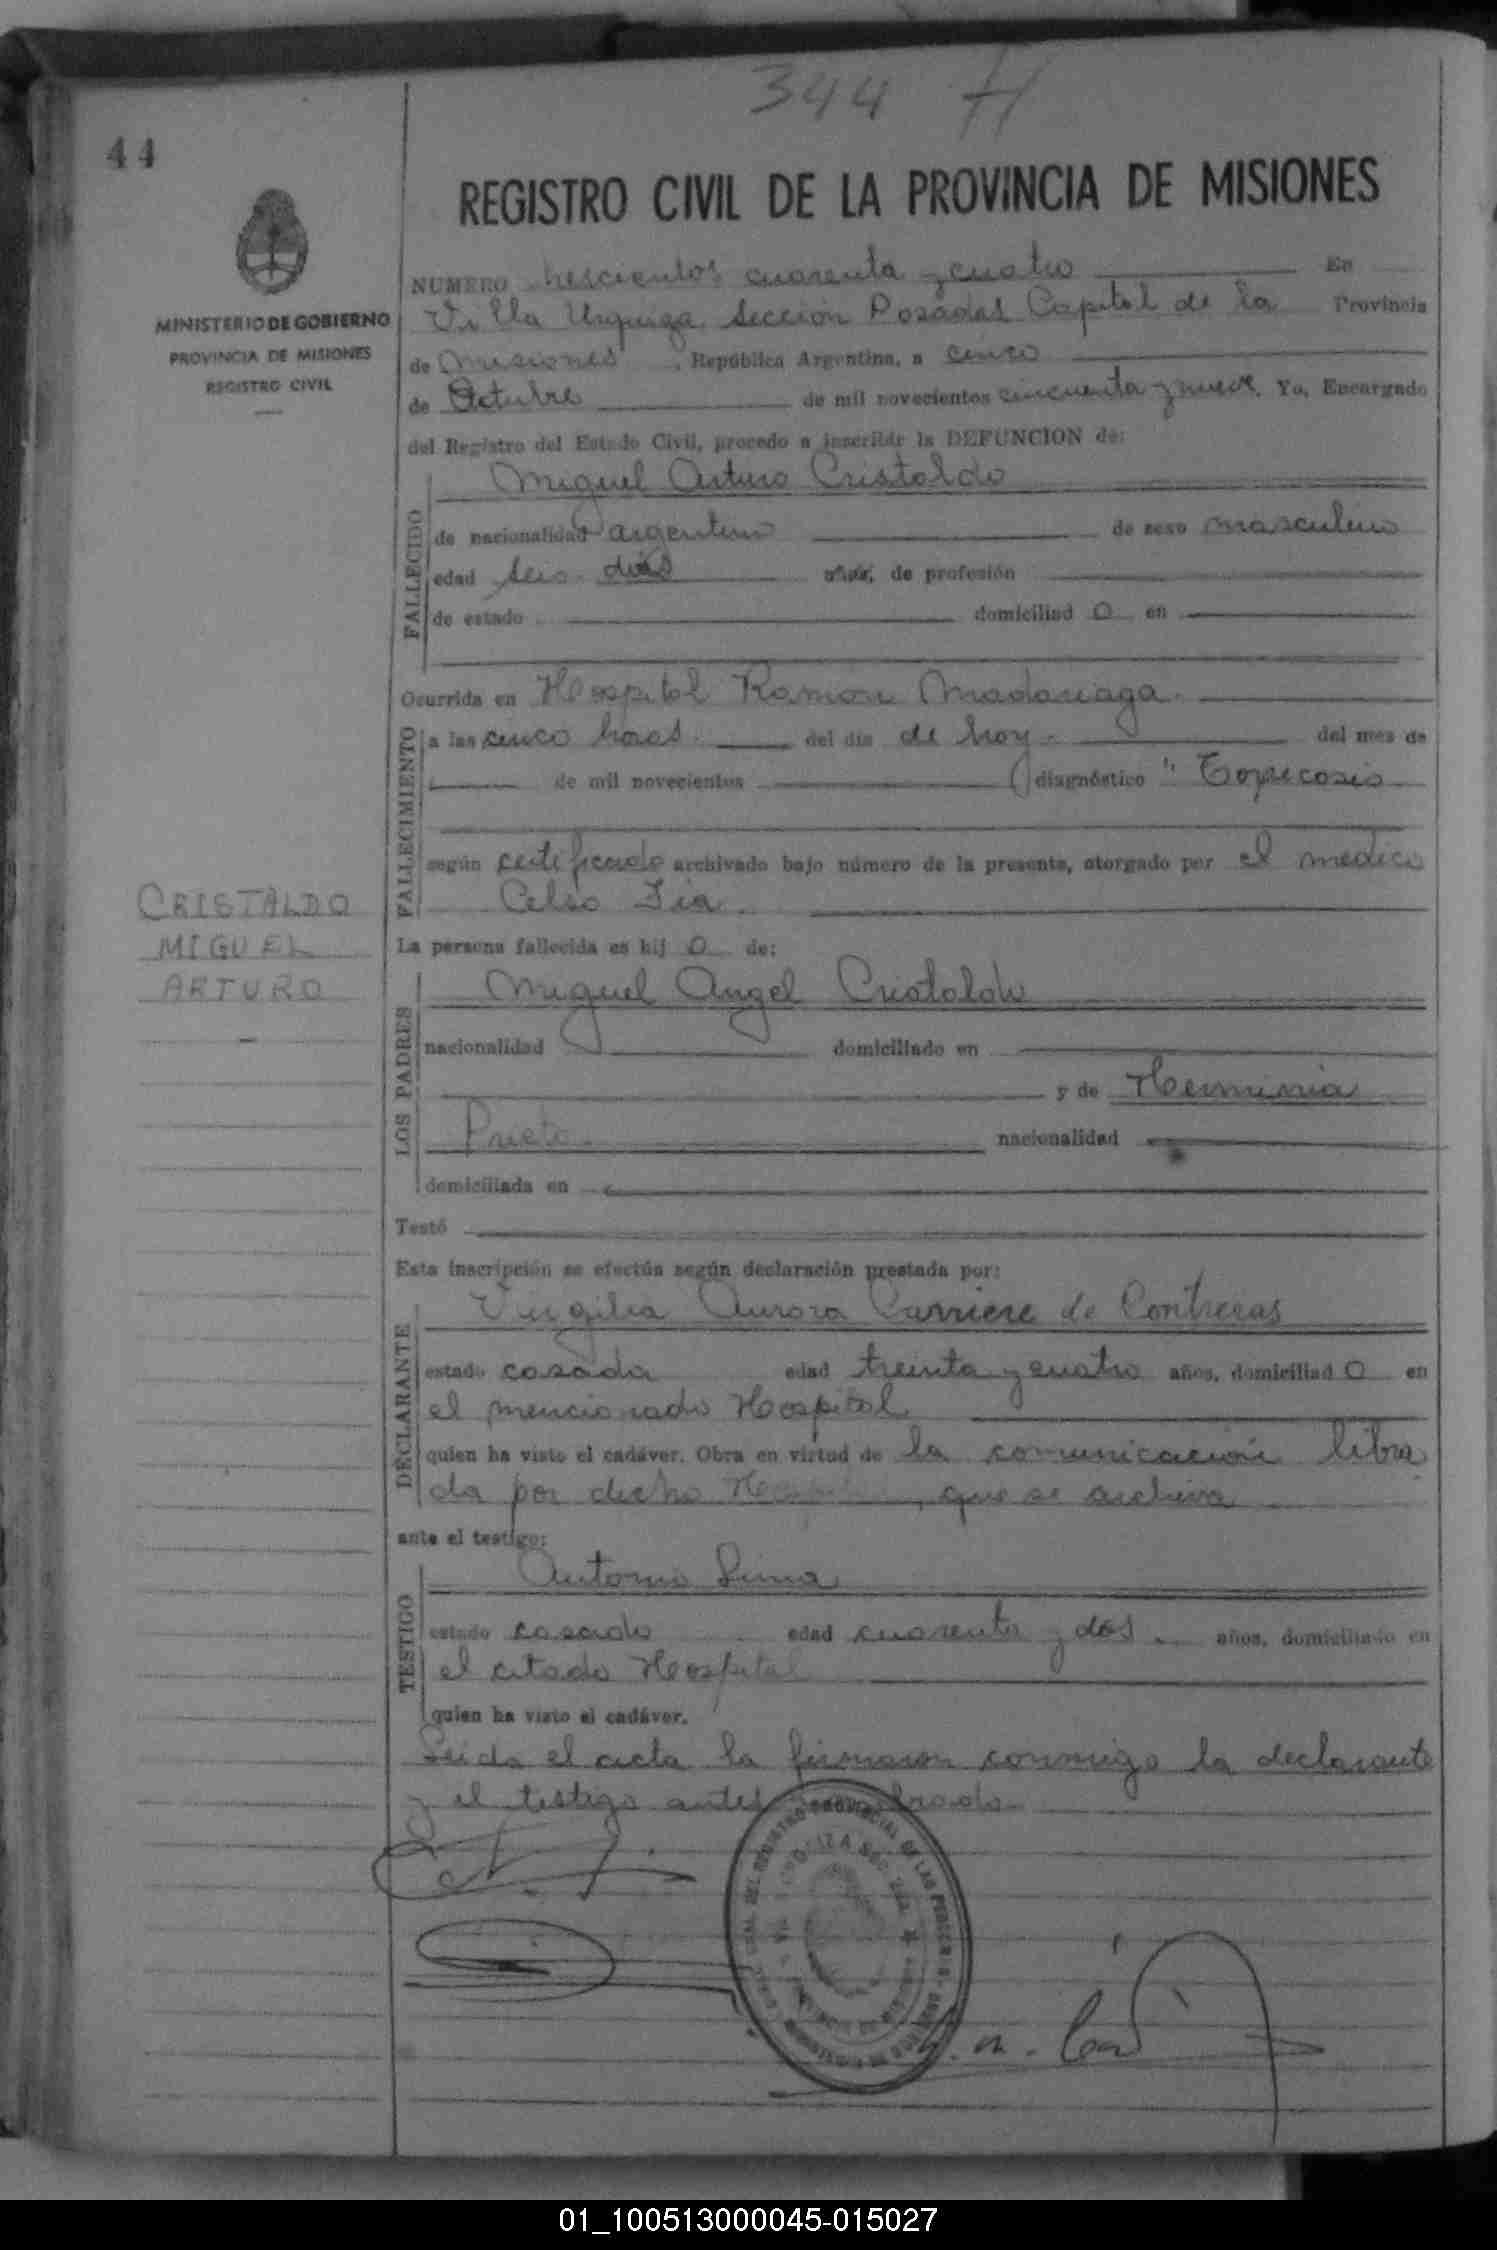 344 H
44
REGISTRO CIVIL DE LA PROVINCIA DE MISIONES
MINISTERIO DE GOBIERNO
PROVINCIA DE MISIONES
REGISTRO CIVIL
NUMERO trescientos cuarenta y cuatro En
Villa Urquiza Sección Posadas Capital de la Provincia
de Misiones, República Argentina, a cinco
de Octubre de mil novecientos cincuenta y nueve. Yo, Encargado
del Registro del Estado Civil, procedo a inscribir la DEFUNCION de:
FALLECIDO
Miguel Arturo Cristaldo
de nacionalidad argentino de sexo masculino
edad seis dias años, de profesión
de estado domiciliad o en
Ocurrida en Hospital Ramon Madariaga.
FALLECIMIENTO
a las cinco horas. del día de hoy. del mes de
de mil novecientos () diagnóstico "
según certificado archivado bajo número de la presente, otorgado por el medico
Celso
CRISTALDO
MIGUEL
ARTURO
La persona fallecida es hij o de:
LOS PADRES
Miguel Angel Cristaldo
nacionalidad domiciliado en
y de Herminia
Prieto. nacionalidad
domiciliada en
Testó
Esta inscripción se efectúa según declaración prestada por:
DECLARANTE
Virgilia Aurora Carriere de Contreras
estado casada edad treinta y cuatro años, domiciliad o en
el mencionado Hospital
quien ha visto el cadáver. Obra en virtud de la comunicación libra
da por dicho Hospital, que se archiva
ante el testigo:
TESTIGO
Antonio Lima
estado casado edad cuarenta y dos años, domiciliado en
el citado Hospital
quien ha visto el cadáver.
Leida el acta la firmaron conmigo la declarante
y el testigo antes
01_100513000045-015027